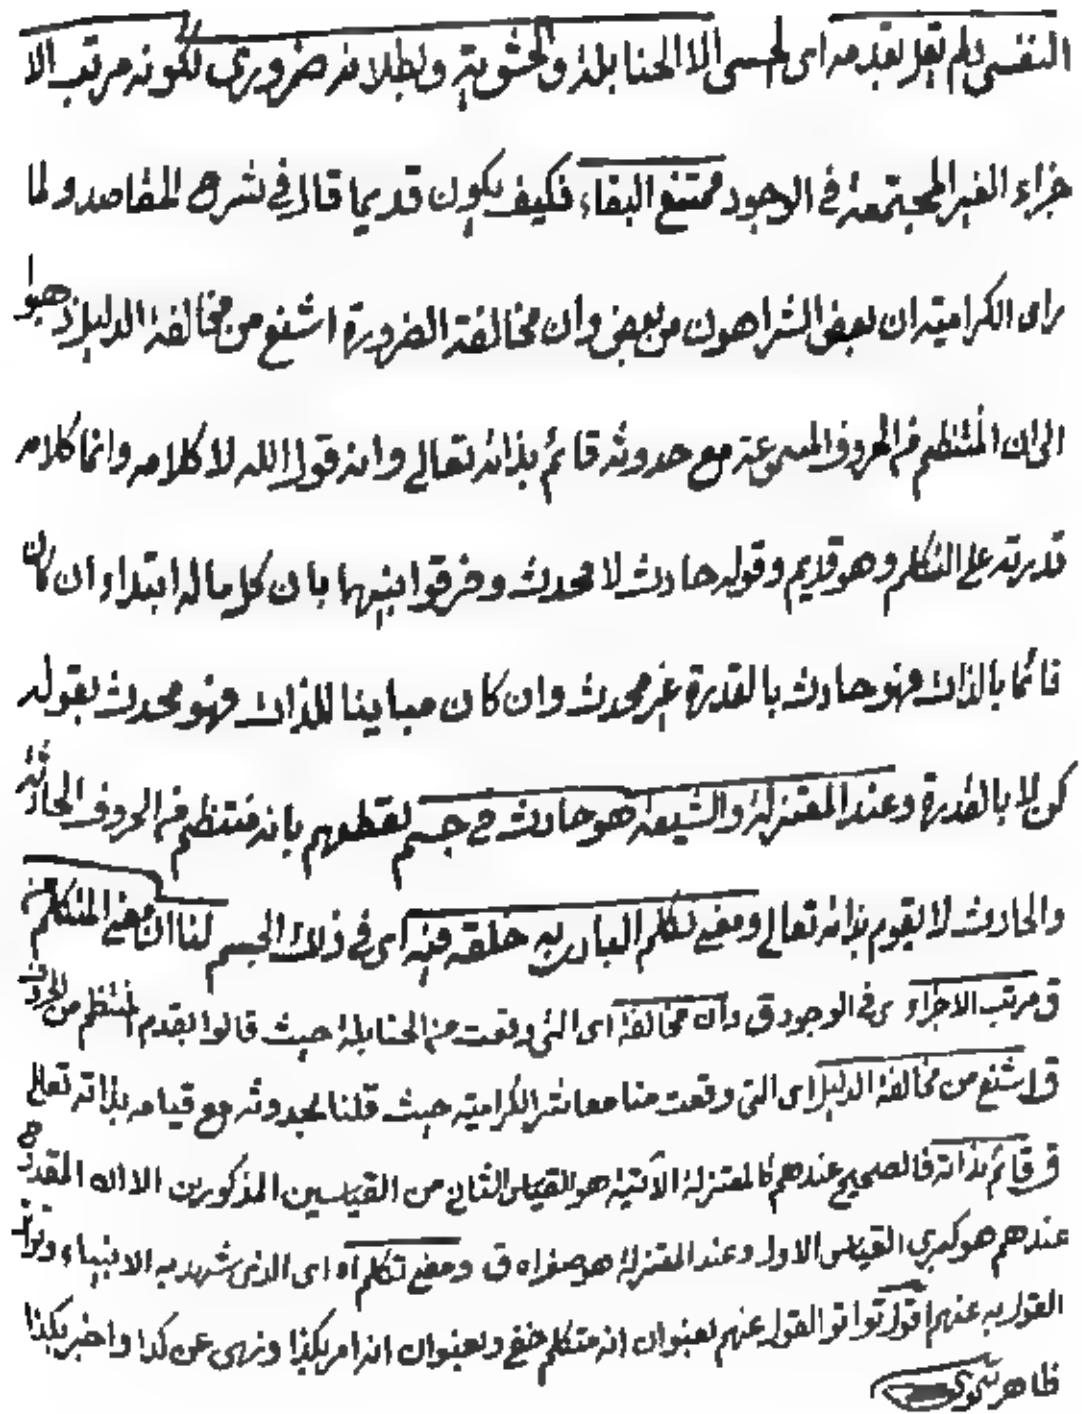 النفسى ولم يقل بقدمه اى الحسى الا الحنابلة والحشوية وبطلانه ضرورى لكونه مرتب الا
جزاء الغير المجتمعة فى الوجود ممتنع البقاء فكيف يكون قديما قال فى شرح المقاصد ولما
راى الكرامية ان بعض الشر اهون من بعض وان مخالفة الضرورة اشنع من مخالفة الدليل ذهبوا
الى ان المنتظم من الحروف المسموعة مع حدوثه قائم بذاته تعالى وانه قول الله لا كلامه وانما كلامه
قدرته على التكلم وهو قديم وقوله حادث لا محدث وفرقوا بينهما بان كل ما له ابتداء ان كان
قائما بالذات فهو حادث بالقدرة غير محدث وان كان مباينا للذات فهو محدث بقوله
كن لا بالقدرة وعند المعتزلة والشيعة هو حادث فى جسم لقطعهم بانه منتظم من الحروف الحادثة
والحادث لا يقوم بذاته تعالى ومعنى تكلم البارى به خلقه فيه اى فى ذلك الجسم لنا ان معنى المتكلم
ق مرتب الاجزاء اى فى الوجود ق وان مخالفة اى التى وقعت من الحنابلة حيث قالوا بقدم المنتظم من الحروف
ق اشنع من مخالفة الدليل اى التى وقعت منا معاشر الكرامية حيث قلنا بحدوثه مع قيامه بذاته تعالى
ق قائم بذاته فالصحيح عندهم كالمعتزلة الآتية هو القياس الثانى من القياسين المذكورين الا ان المقدوح
عندهم هو كبرى القياس الاول وعند المعتزلة هو صغراه ق ومعنى تكلم اه اى الذى شهد به الانبياء وتواتر
القول به عنهم اقول تواتر القول عنهم بعنوان انه متكلم خفى وبعنوان انه امر بكذا ونهى عن كذا واخبر بكذا
ظاهر